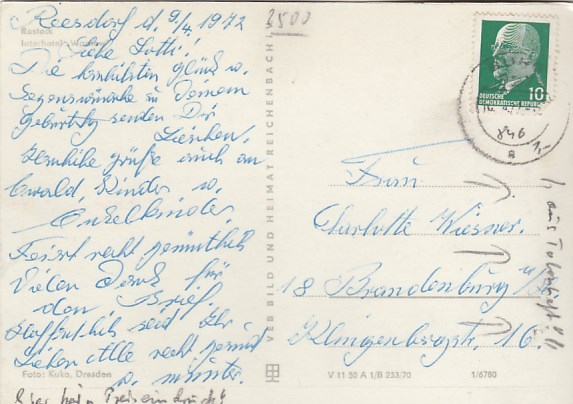 Reesdorf d. 9/4. 1972
3500
Rostock
Interhotel Warnow
Liebe Lotti!
Die herzlichsten Glück u.
Segenswünsche zu Deinem
Geburtstg senden Dir
Lieschen.
Herzliche Grüße auch an
Ewald, Kinder u.
Enkelkinder.
Feiert recht gemütlich
Vielen Dank für
den Brief.
Hoffentlich seid Ihr
Lieben Alle recht gesund
u. munter.
Foto: Kuka, Dresden
VEB BILD UND HEIMAT REICHENBACH
10
DEUTSCHE
DEMOKRATISCHE REPUBLIK
846
a
Frau
Charlotte Wiesner.
18 Brandenburg
Klingenbergstr. 16.
V 11 50 A 1/B 233/70 1/6780